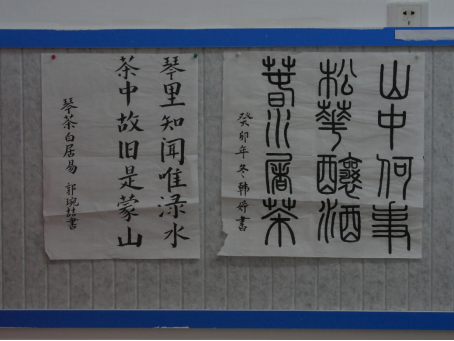 山中何事
松華釀酒
春水煎茶
癸卯年冬韩書
琴里知聞唯渌水
茶中故旧是蒙山
琴茶白居易 郭婉喆書